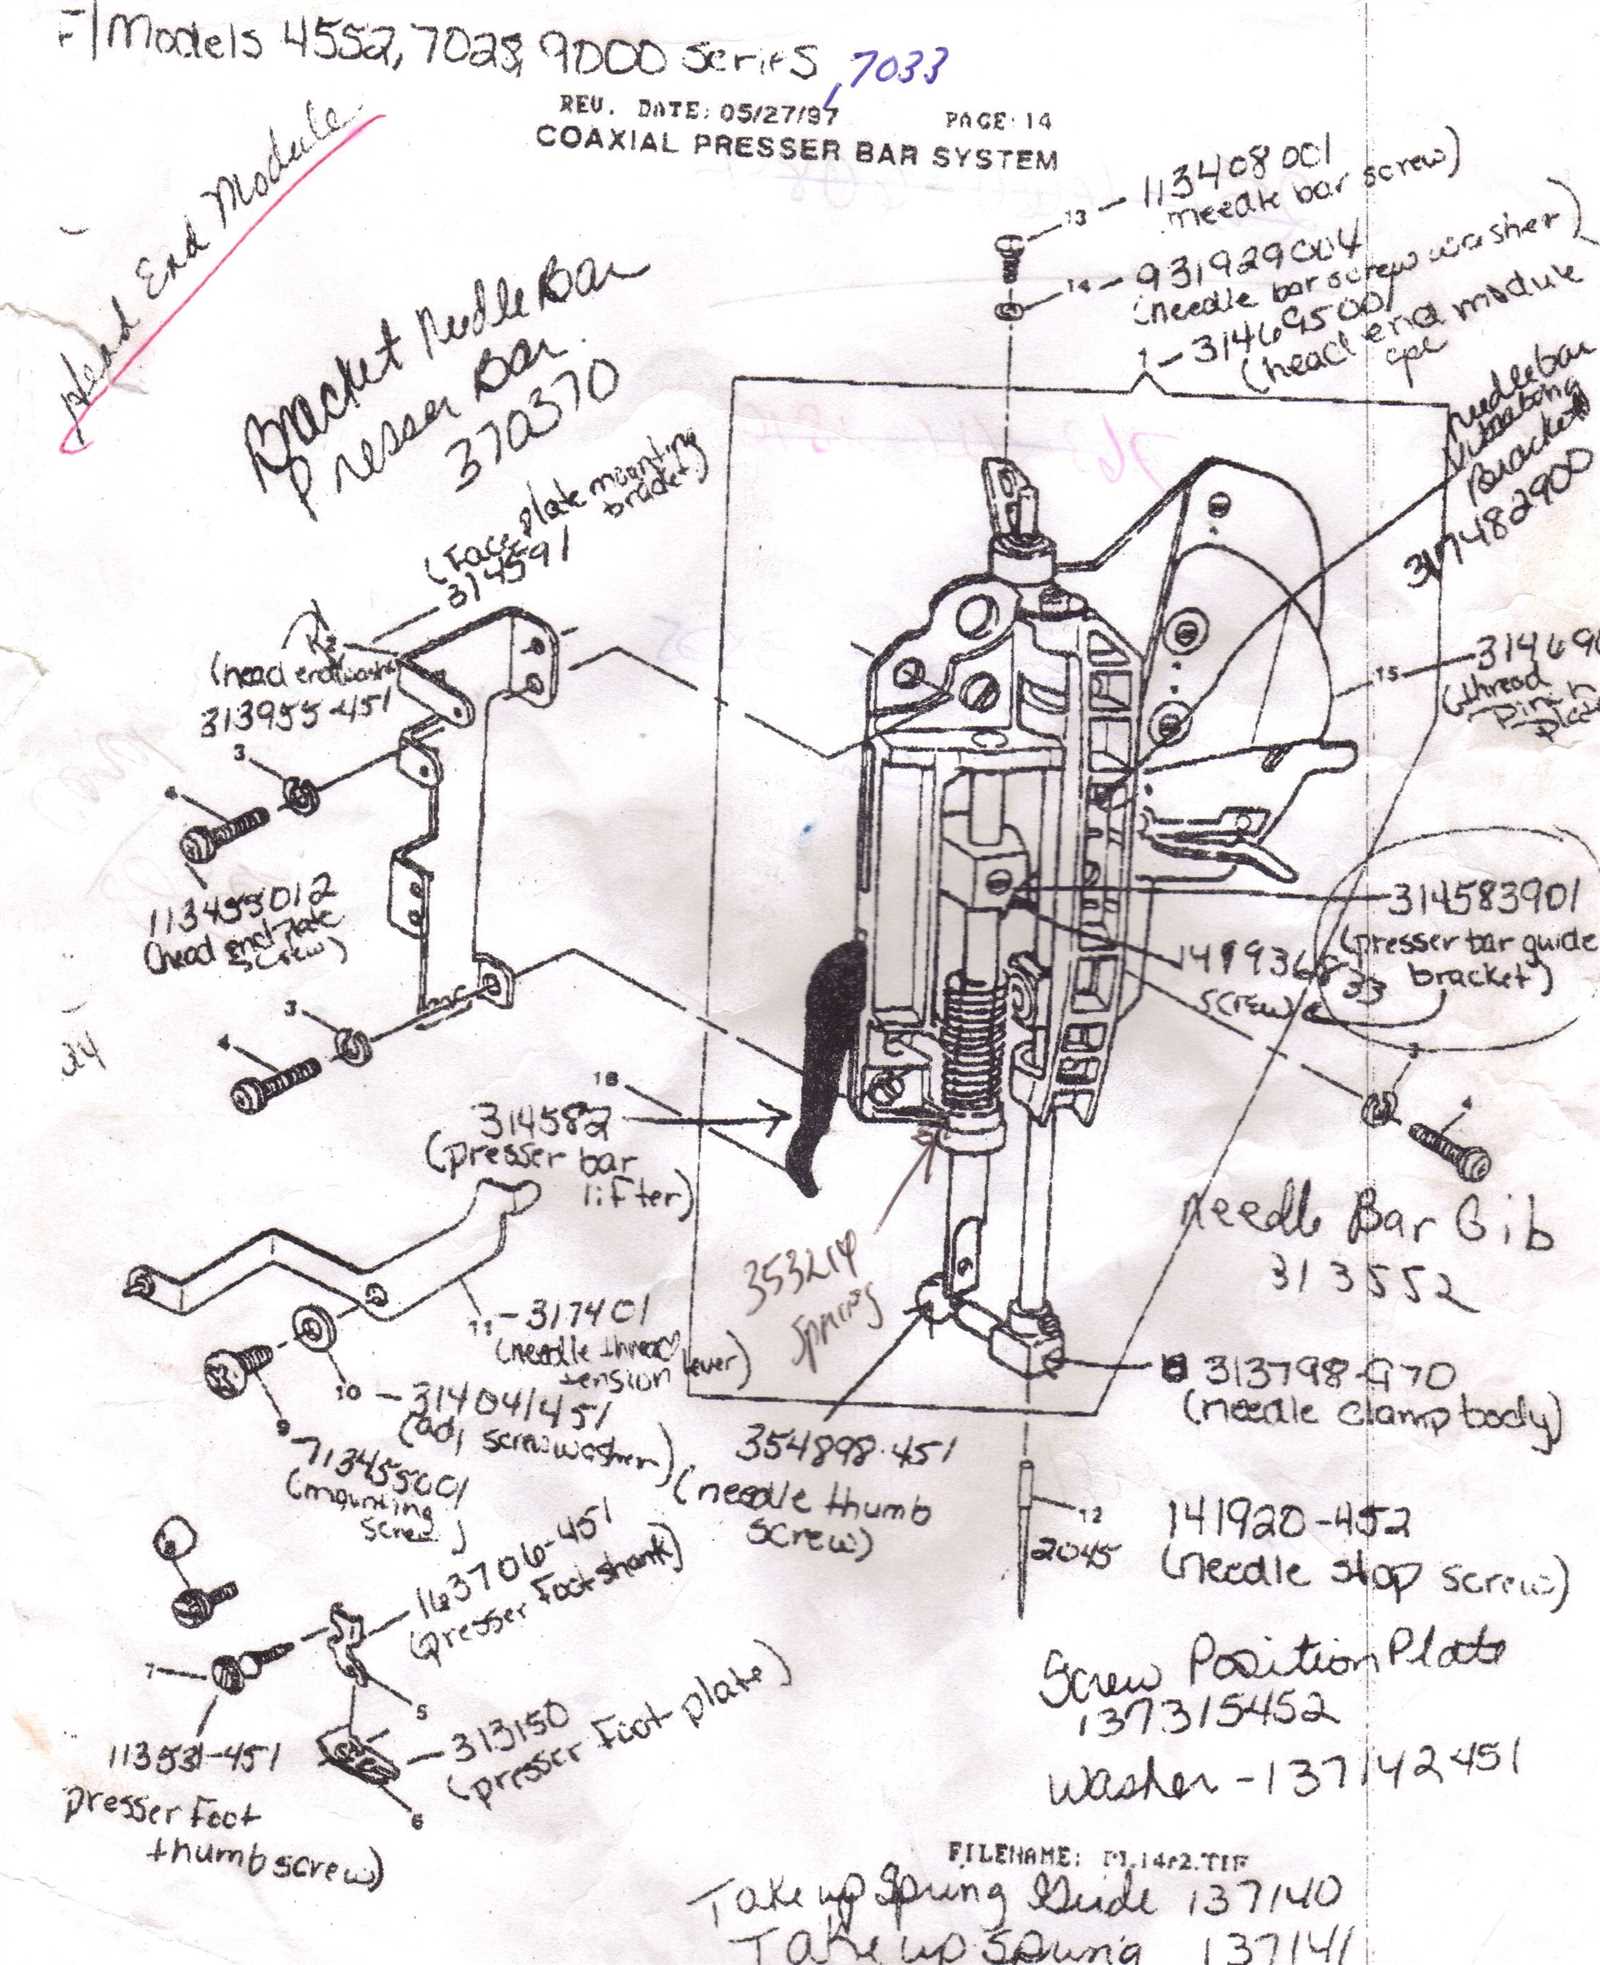 F/Models 4552, 7028, 9000 series, 7033
REV. DATE: 05/27/97 PAGE: 14
COAXIAL PRESSER BAR SYSTEM
Head End Module
Bracket Needle Bar
Presser Bar
370370
13 - 113408001
needle bar screw)
14 - 931929004
(needle bar screw washer)
1 - 314695001
(head end module
cpl
needle bar
Bracket
317482900
(face plate mounting
bracket)
314591
(head end washer
313955-451
3
4
113455012
(head end plate
screw)
3
4
15 - 31469
(thread
pinch
plate
314583901
(presser bar guide
bracket)
1419368
screw)
33
3
4
18
314582
(presser bar
lifter)
353214
spring
Needle Bar Gib
313552
11 - 317401
(needle thread
tension lever)
10 - 314041451
(adj screw washer)
9
713455001
(mounting
screw)
313798-970
(needle clamp body)
354898-451
(needle thumb
screw)
12
2045
141920-452
(needle stop screw)
163706-451
(presser foot shank)
7
5
113531-451
presser foot
thumbscrew)
313150
(presser foot plate)
6
Screw Position Plate
137315452
Washer - 137142451
FILENAME:
Take up Spring Guide 137140
Take up Spring 137141